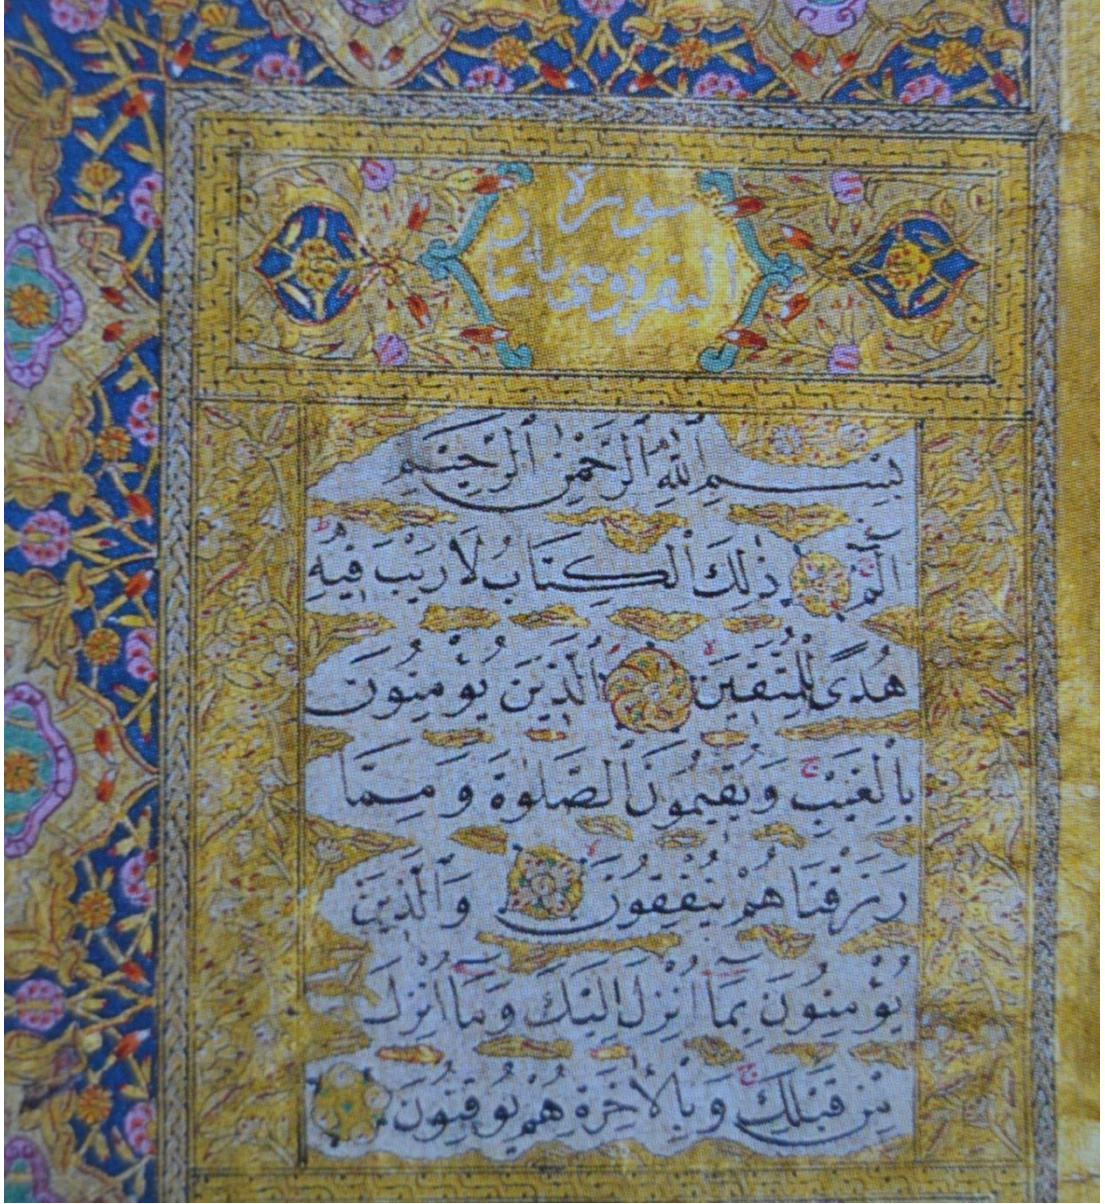 سورة
البقرة وهي مائتان
بِسْمِ ٱللَّهِ ٱلرَّحْمٰنِ ٱلرَّحِيمِ
الٓمٓ ذٰلِكَ ٱلْكِتَابُ لَا رَيْبَ فِيهِ
هُدًى لِلْمُتَّقِينَ ٱلَّذِينَ يُؤْمِنُونَ
بِالْغَيْبِ وَيُقِيمُونَ ٱلصَّلٰوةَ وَمِمَّا
رَزَقْنَاهُمْ يُنْفِقُونَ وَٱلَّذِينَ
يُؤْمِنُونَ بِمَٓا أُنْزِلَ إِلَيْكَ وَمَٓا أُنْزِلَ
مِنْ قَبْلِكَ وَبِالْاٰخِرَةِ هُمْ يُوقِنُونَ